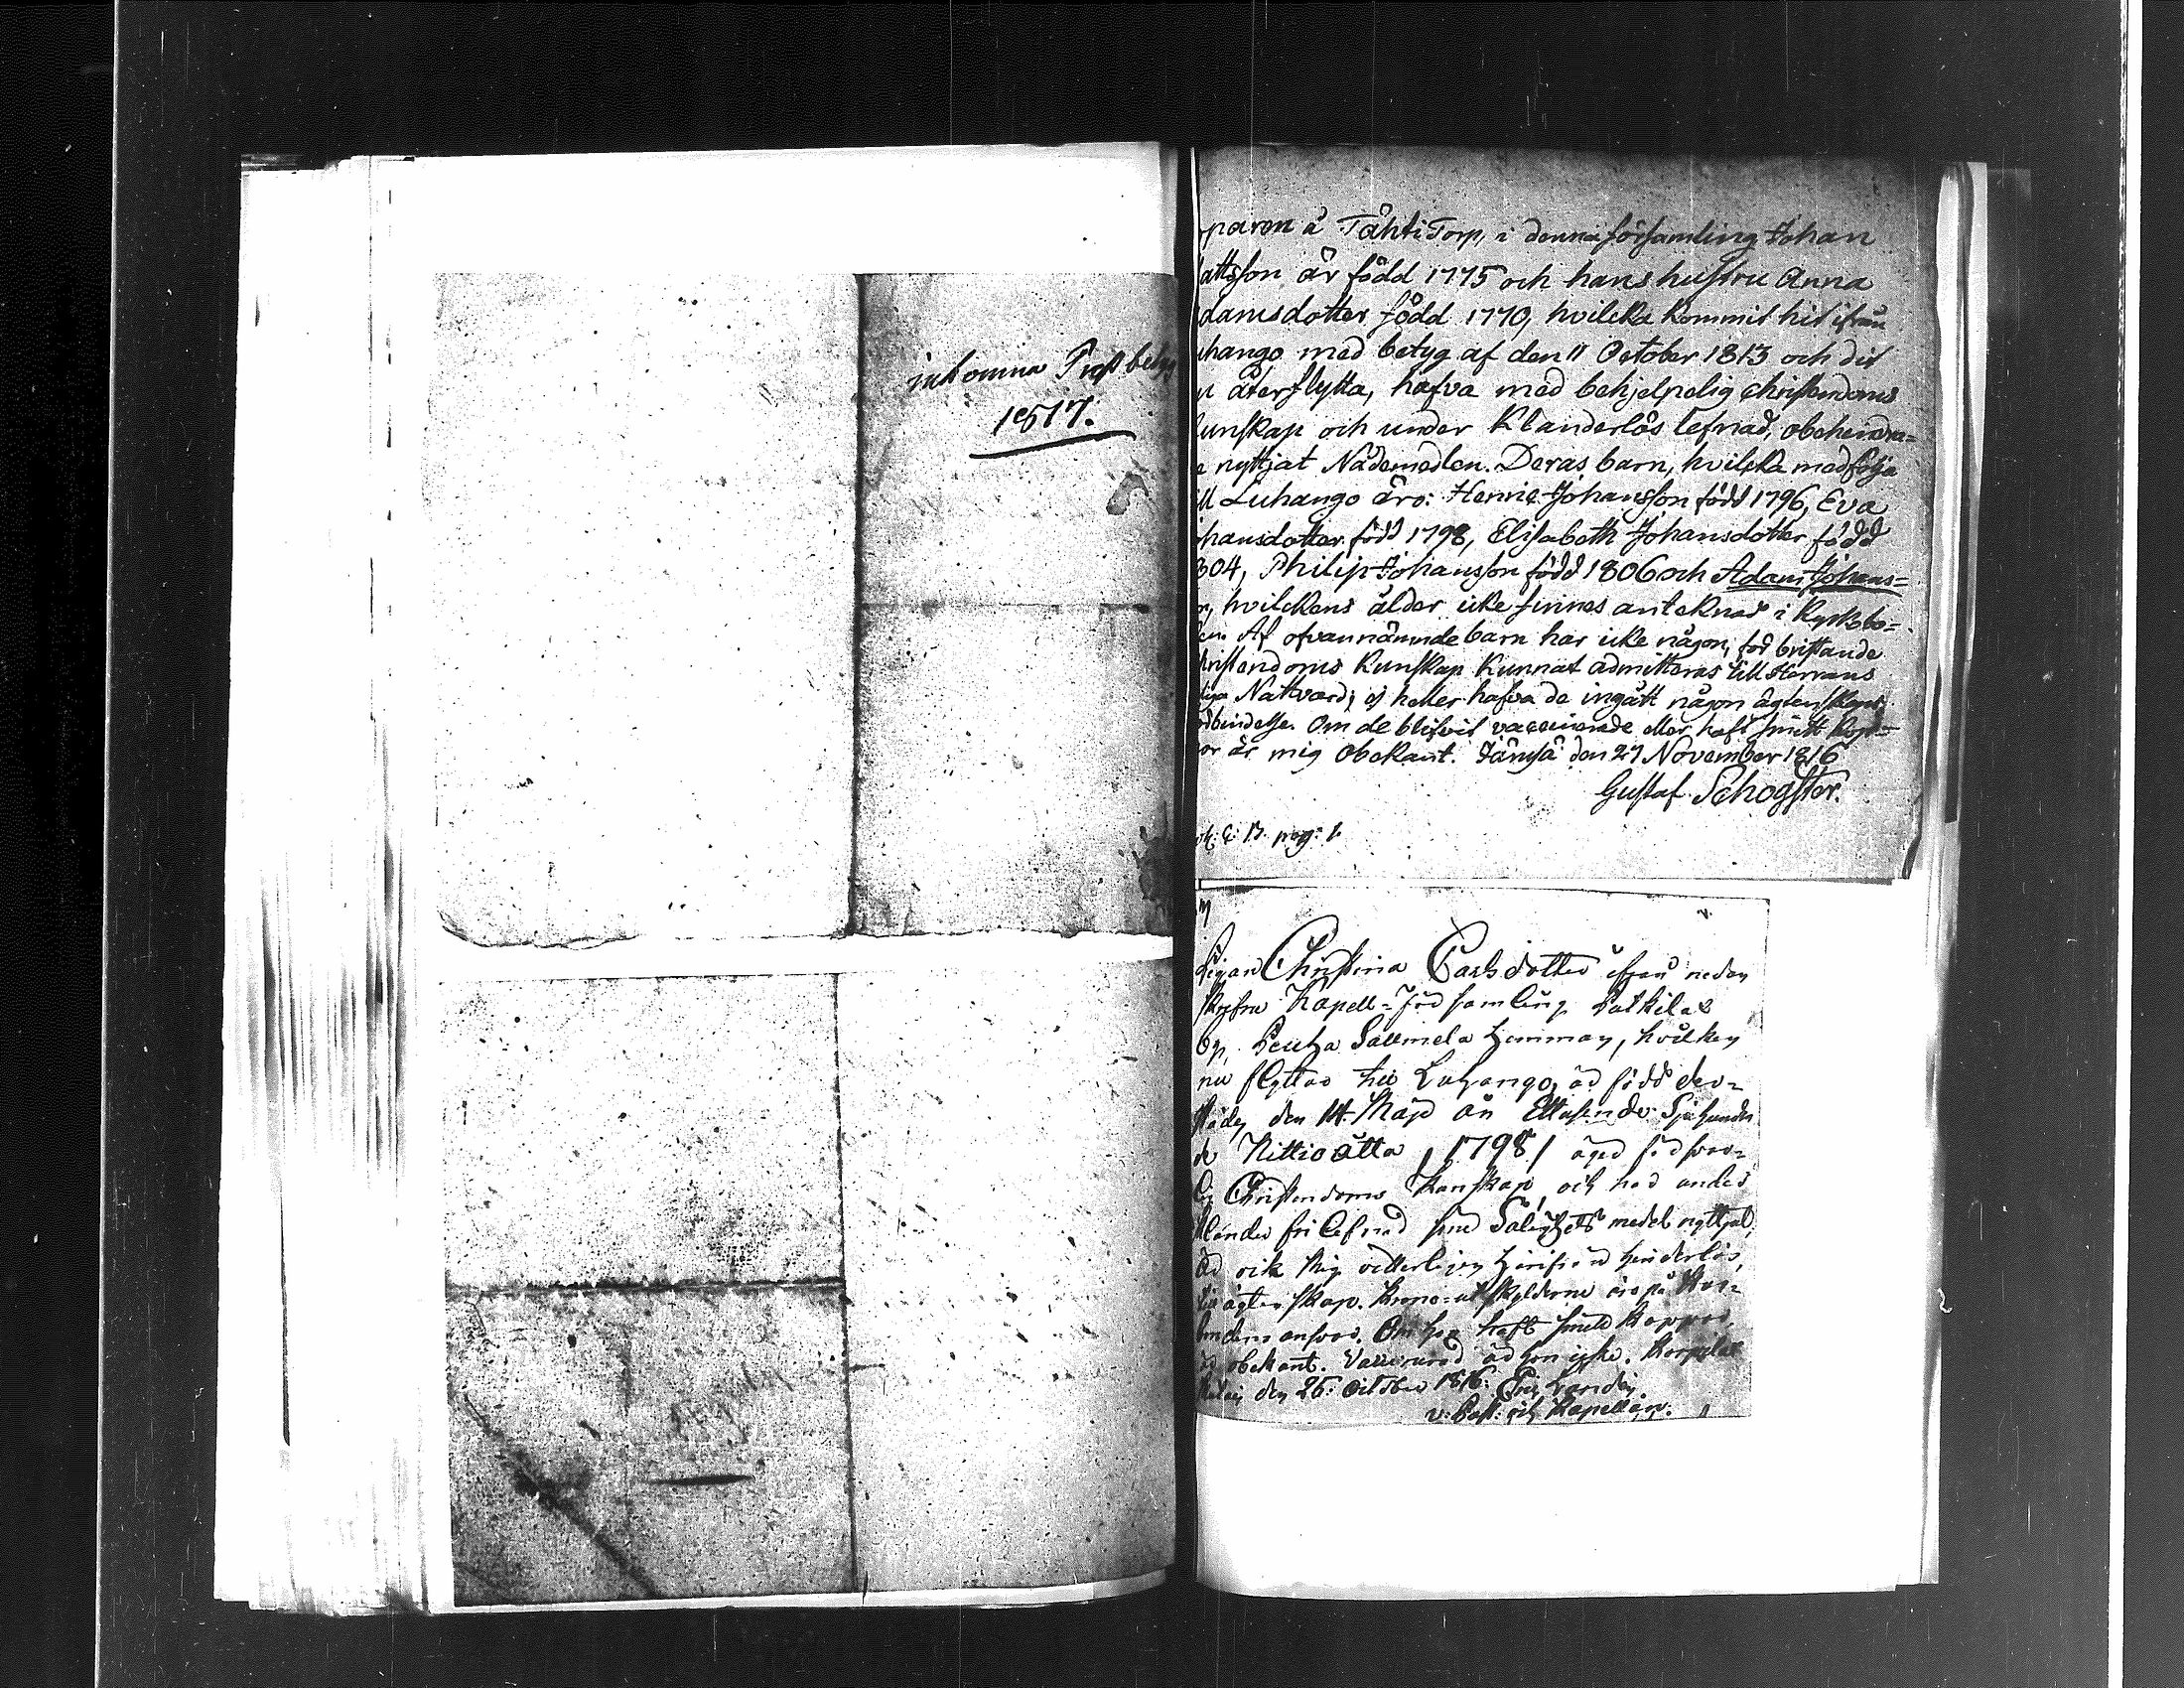 inkomna Prestbetyg
1817.
paren å Tähti Torp, i denna församling Johan
attsson är född 1775 och hans hustru Anna
damsdotter född 1770, hvilcka kommit hit ifrån
uhango med betyg af den 11 October 1813 och dit
u återflytta, hafva med behjelpelig christendoms
kunskap och under klanderlös lefnad, obehindra=
e nyttjat Nådemedlen. Deras barn, hvilcka medfölja
ill Luhango äro: Henric Johansson född 1796, Eva
ohansdotter född 1798, Elisabeth Johansdotter född
804, Philip Johansson född 1806 och Adam Johans=
on, hvilckens ålder icke finnes anteknad i Kyrkobo=
ken. Af ofvannämnde barn har icke någon, för bristande
Christendoms kunskap kunnat admitteras till Herrans
liga Nattvard; ej heller hafva de ingått någon ägtenskaps
örbindelse. Om de blifvit vaccinerade eller haft smitt kop=
or är mig obekant. Jämsä den 27 November 1816
Gustaf Schogster.
C: 13. pag: 1.
Pigan Christina Carlsdotter ifrån nedan
skrefne Kapell=Församling
by, Hemman, hvilken
nu flyttar till Luhango, är född der=
städes den 14 Maji år Ettusende Sjuhundra
de Nittioåtta /1798/ äger försvar=
lig Christendoms kunskap, och har under
klander fri lefnad sine Salighets medel nyttjat,
är ock mig vetterligen härifrån hinderlös,
till ägtenskap. Krono=utskylderne äro på
ansvar. Om hon haft smitt koppor,
är obekant. Vaccinerad är hon icke.
den 25 October 1816.
v: Past: och Kapellan.